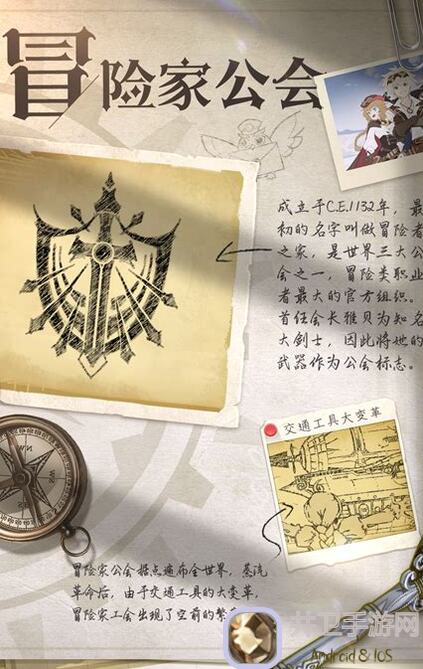 冒险家公会
成立于C.E.1132年，最
初的名字叫做冒险者
之家，是世界三大公
会之一，冒险类职业
者最大的官方组织。
首任会长雅贝为知名
大剑士，因此将她的
武器作为公会标志。
交通工具大变革
冒险家公会据点遍布全世界，蒸汽
革命后，由于交通工具的大变革，
冒险家工会出现了空前的繁
卫手游网
Android & IOS